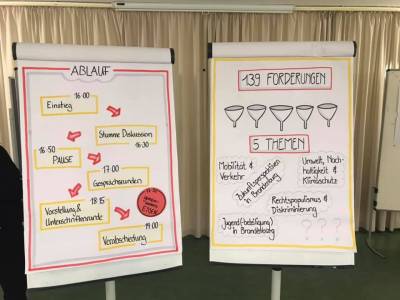 ABLAUF
16:00
Einstieg
Stumme Diskussion
16:30
16:50
PAUSE
17:00
Gesprächsrunden
18:15
Vorstellung &
Unterschriftenrunde
ESSEN
19:00
Verabschiedung
139 FORDERUNGEN
5 THEMEN
Mobilität &
Verkehr
Umwelt, Nach-
haltigkeit &
Klimaschutz
Zukunftsperspektiven
in Brandenburg
Rechtspopulismus &
Diskriminierung
Jugend(beteiligung)
in Brandenburg
? ? ?